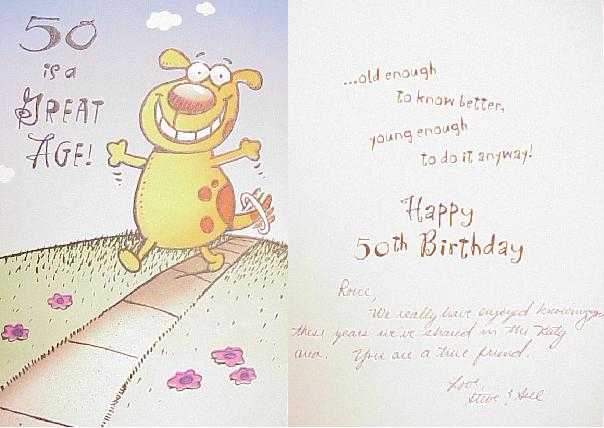 50
is a
GREAT
AGE!
...old enough
to know better,
young enough
to do it anyway!
Happy
50th Birthday
We really have enjoyed knowing you
these years we've shared in the Katy
area. You are a true friend.
Love,
Steve &